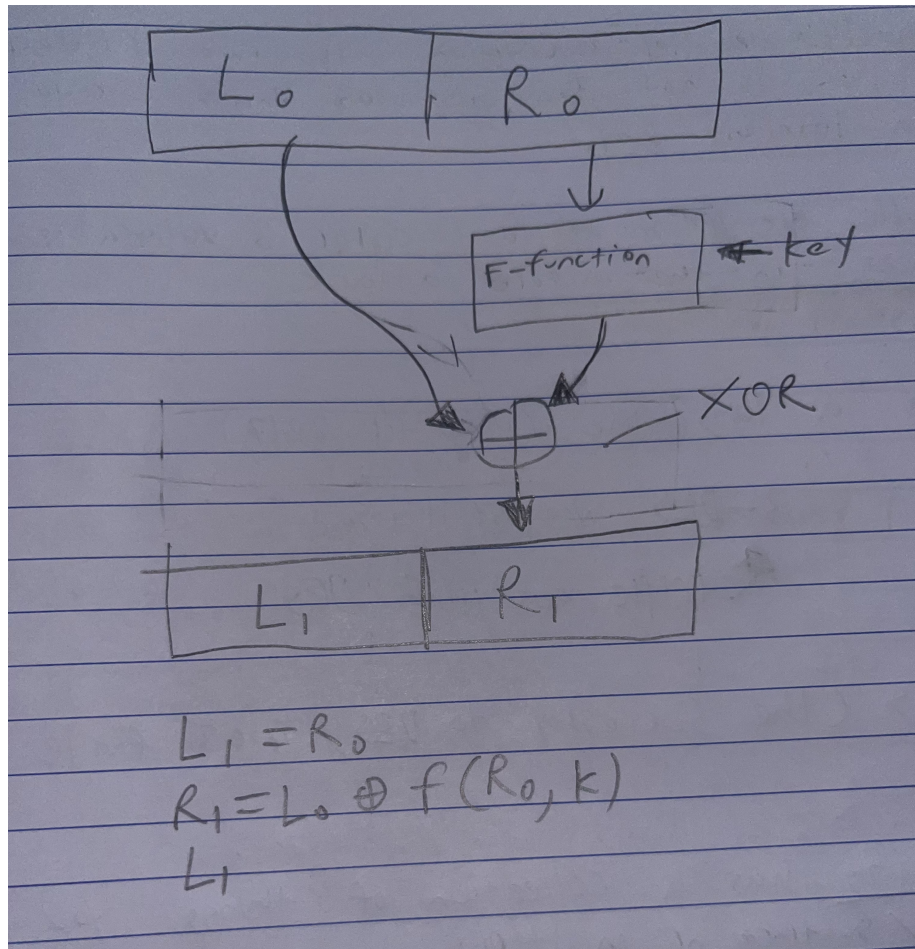 L₀ R₀
F-function key
XOR
L₁ R₁
L₁ = R₀
R₁ = L₀ ⊕ f(R₀, k)
L₁